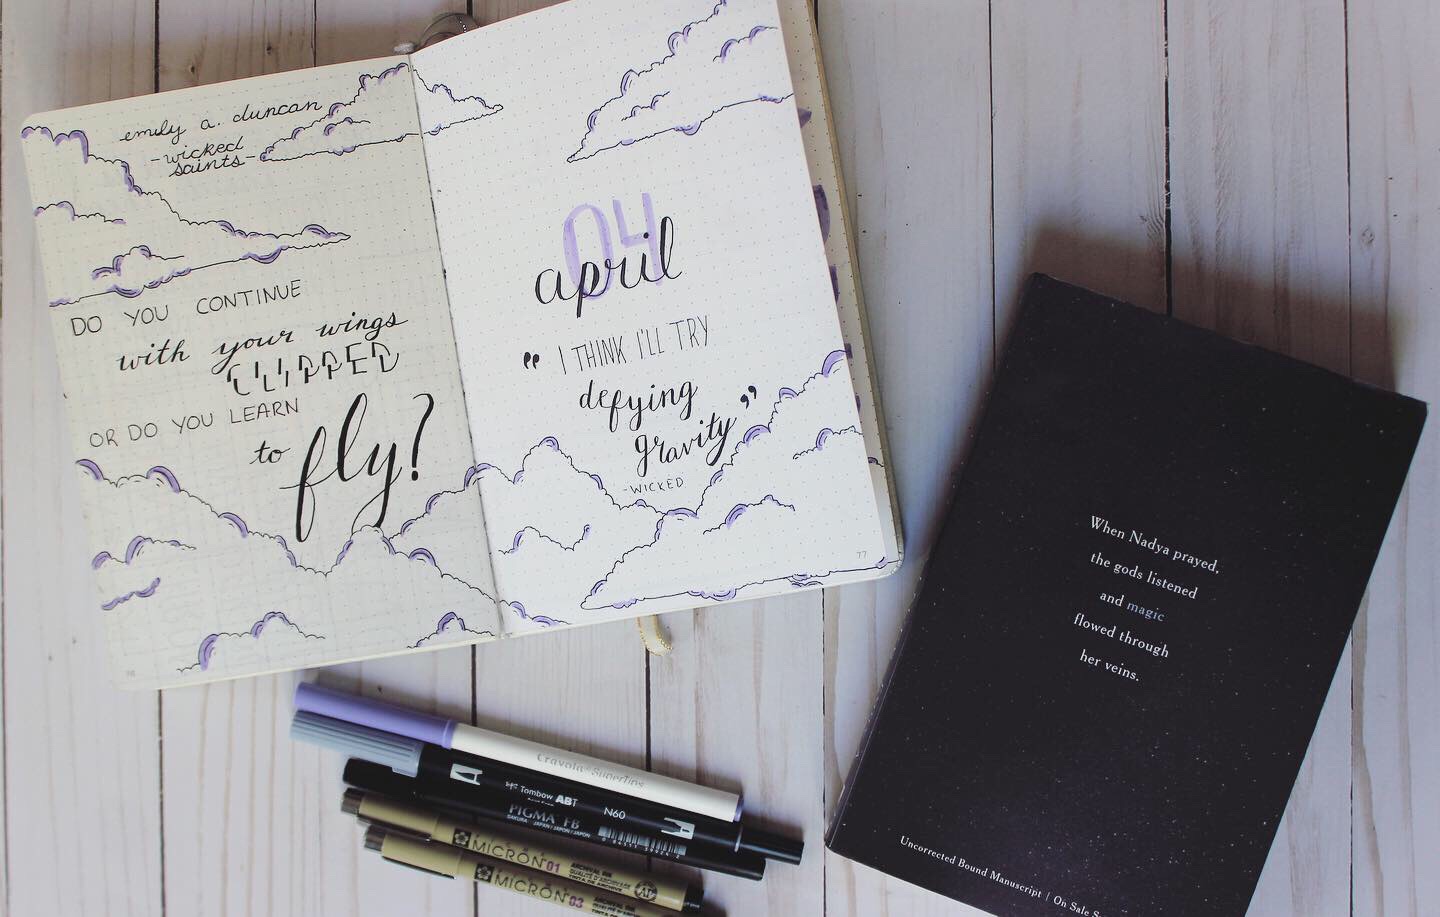 emily a. duncan
-wicked
saints-
DO YOU CONTINUE
with your wings
CLIPPED
OR DO YOU LEARN
to fly?
04
april
" I THINK I'LL TRY
defying
gravity"
-WICKED
77
When Nadya prayed,
the gods listened
and magic
flowed through
her veins.
Uncorrected Bound Manuscript | On Sale
Crayola SuperTips
Tombow ABT N60
PIGMA FB
SAKURA JAPAN
MICRON 01 ARCHIVAL INK
MICRON 03 ARCHIVAL INK